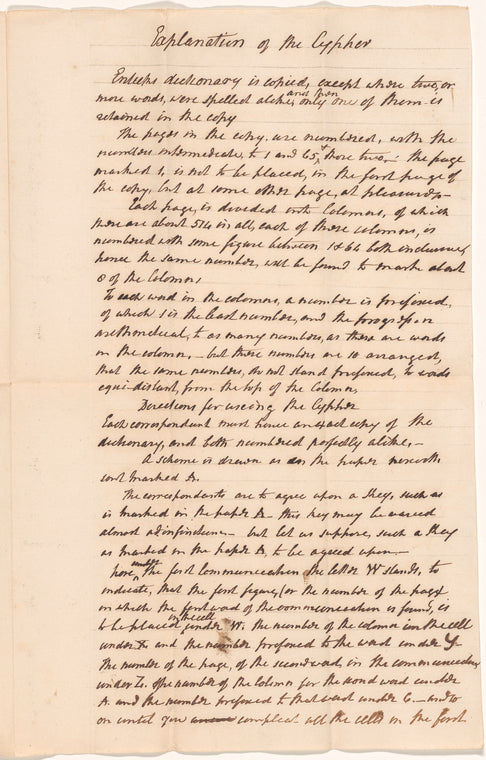 Explanation of the Cypher
Enticks dictionary is copied, except where two, or
more words, were spelled alike, and then only one of them is
retained in the copy
The pages in the copy, are numbered, with the
numbers intermediate, to 1 and 65, & those two,: the page
marked 1, is not to be placed, in the first page of
the copy, but at some other page, at pleasure,—
Each page, is divided into Columns, of which
there are about 514 in all, each of these columns, is
numbered with some figure between 1 & 64 both inclusive,
hence the same number, will be found to mark about
8 of the Columns
To each word in the columns, a number is prefixed,
of which 1 is the least number, and the progression
arithmetical, to as many numbers, as there are words
in the column,— but these numbers are so arranged,
that the same numbers, do not stand prefixed, to words
equi-distant, from the top of the Column,
Directions for useing the Cypher
Each correspondent must have an exact copy of the
dictionary, and both numbered perfectly alike,—
A scheme is drawn as in the paper herewith
sent marked A.
The correspondents are to agree upon a Key, such as
is marked in the paper — this key may be varied
almost ad infinitum — but let us suppose, such a Key
as marked in the paper to be agreed upon —
here, under the first Communication the letter W stands, to
indicate, that the first figure, (or the number of the page
in which the first word of the communication is found, is
to be placed in the cell under W. the number of the column in the cell
under X and the number prefixed to the word under Y.
The number of the page, of the second word in the communication
under Z. the number of the Column for the second word under
A and the number prefixed to that word under C.— and so
on until you compleat all the cells in the first